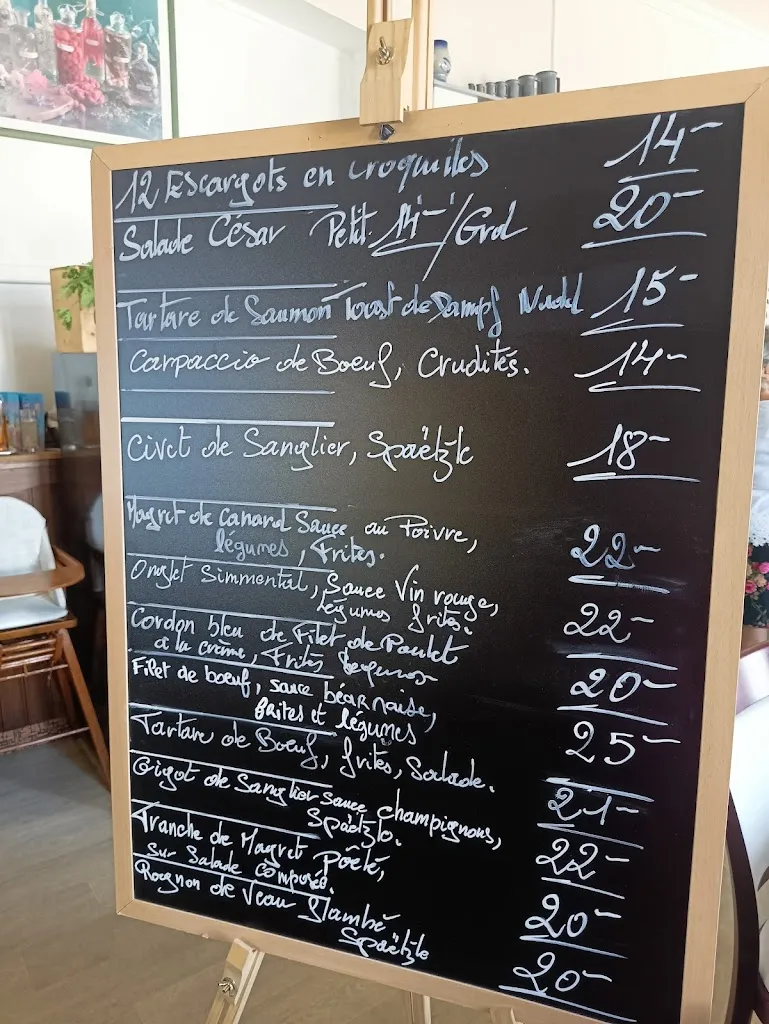 12 Escargots en croquilles 14-
Salade César Petit 14-/Grd 20-
Tartare de Saumon Toast de Dampf Nudel 15-
Carpaccio de Boeuf, Crudités. 14-
Civet de Sanglier, Spaëtzle 18-
Magret de Canard Sauce au Poivre,
légumes, Frites. 22-
Onglet Simmental, Sauce Vin rouge,
légumes frites. 22-
Cordon bleu de Filet de Poulet
à la crème, Frites légumes 20-
Filet de boeuf, sauce béarnaise,
frites et légumes 25-
Tartare de Boeuf, frites, Salade. 21-
Gigot de Sanglier sauce champignons,
Spaëtzle. 22-
Tranche de Magret Poêlé,
sur Salade Composée. 20-
Rognon de Veau flambé
Spaëtzle 20-